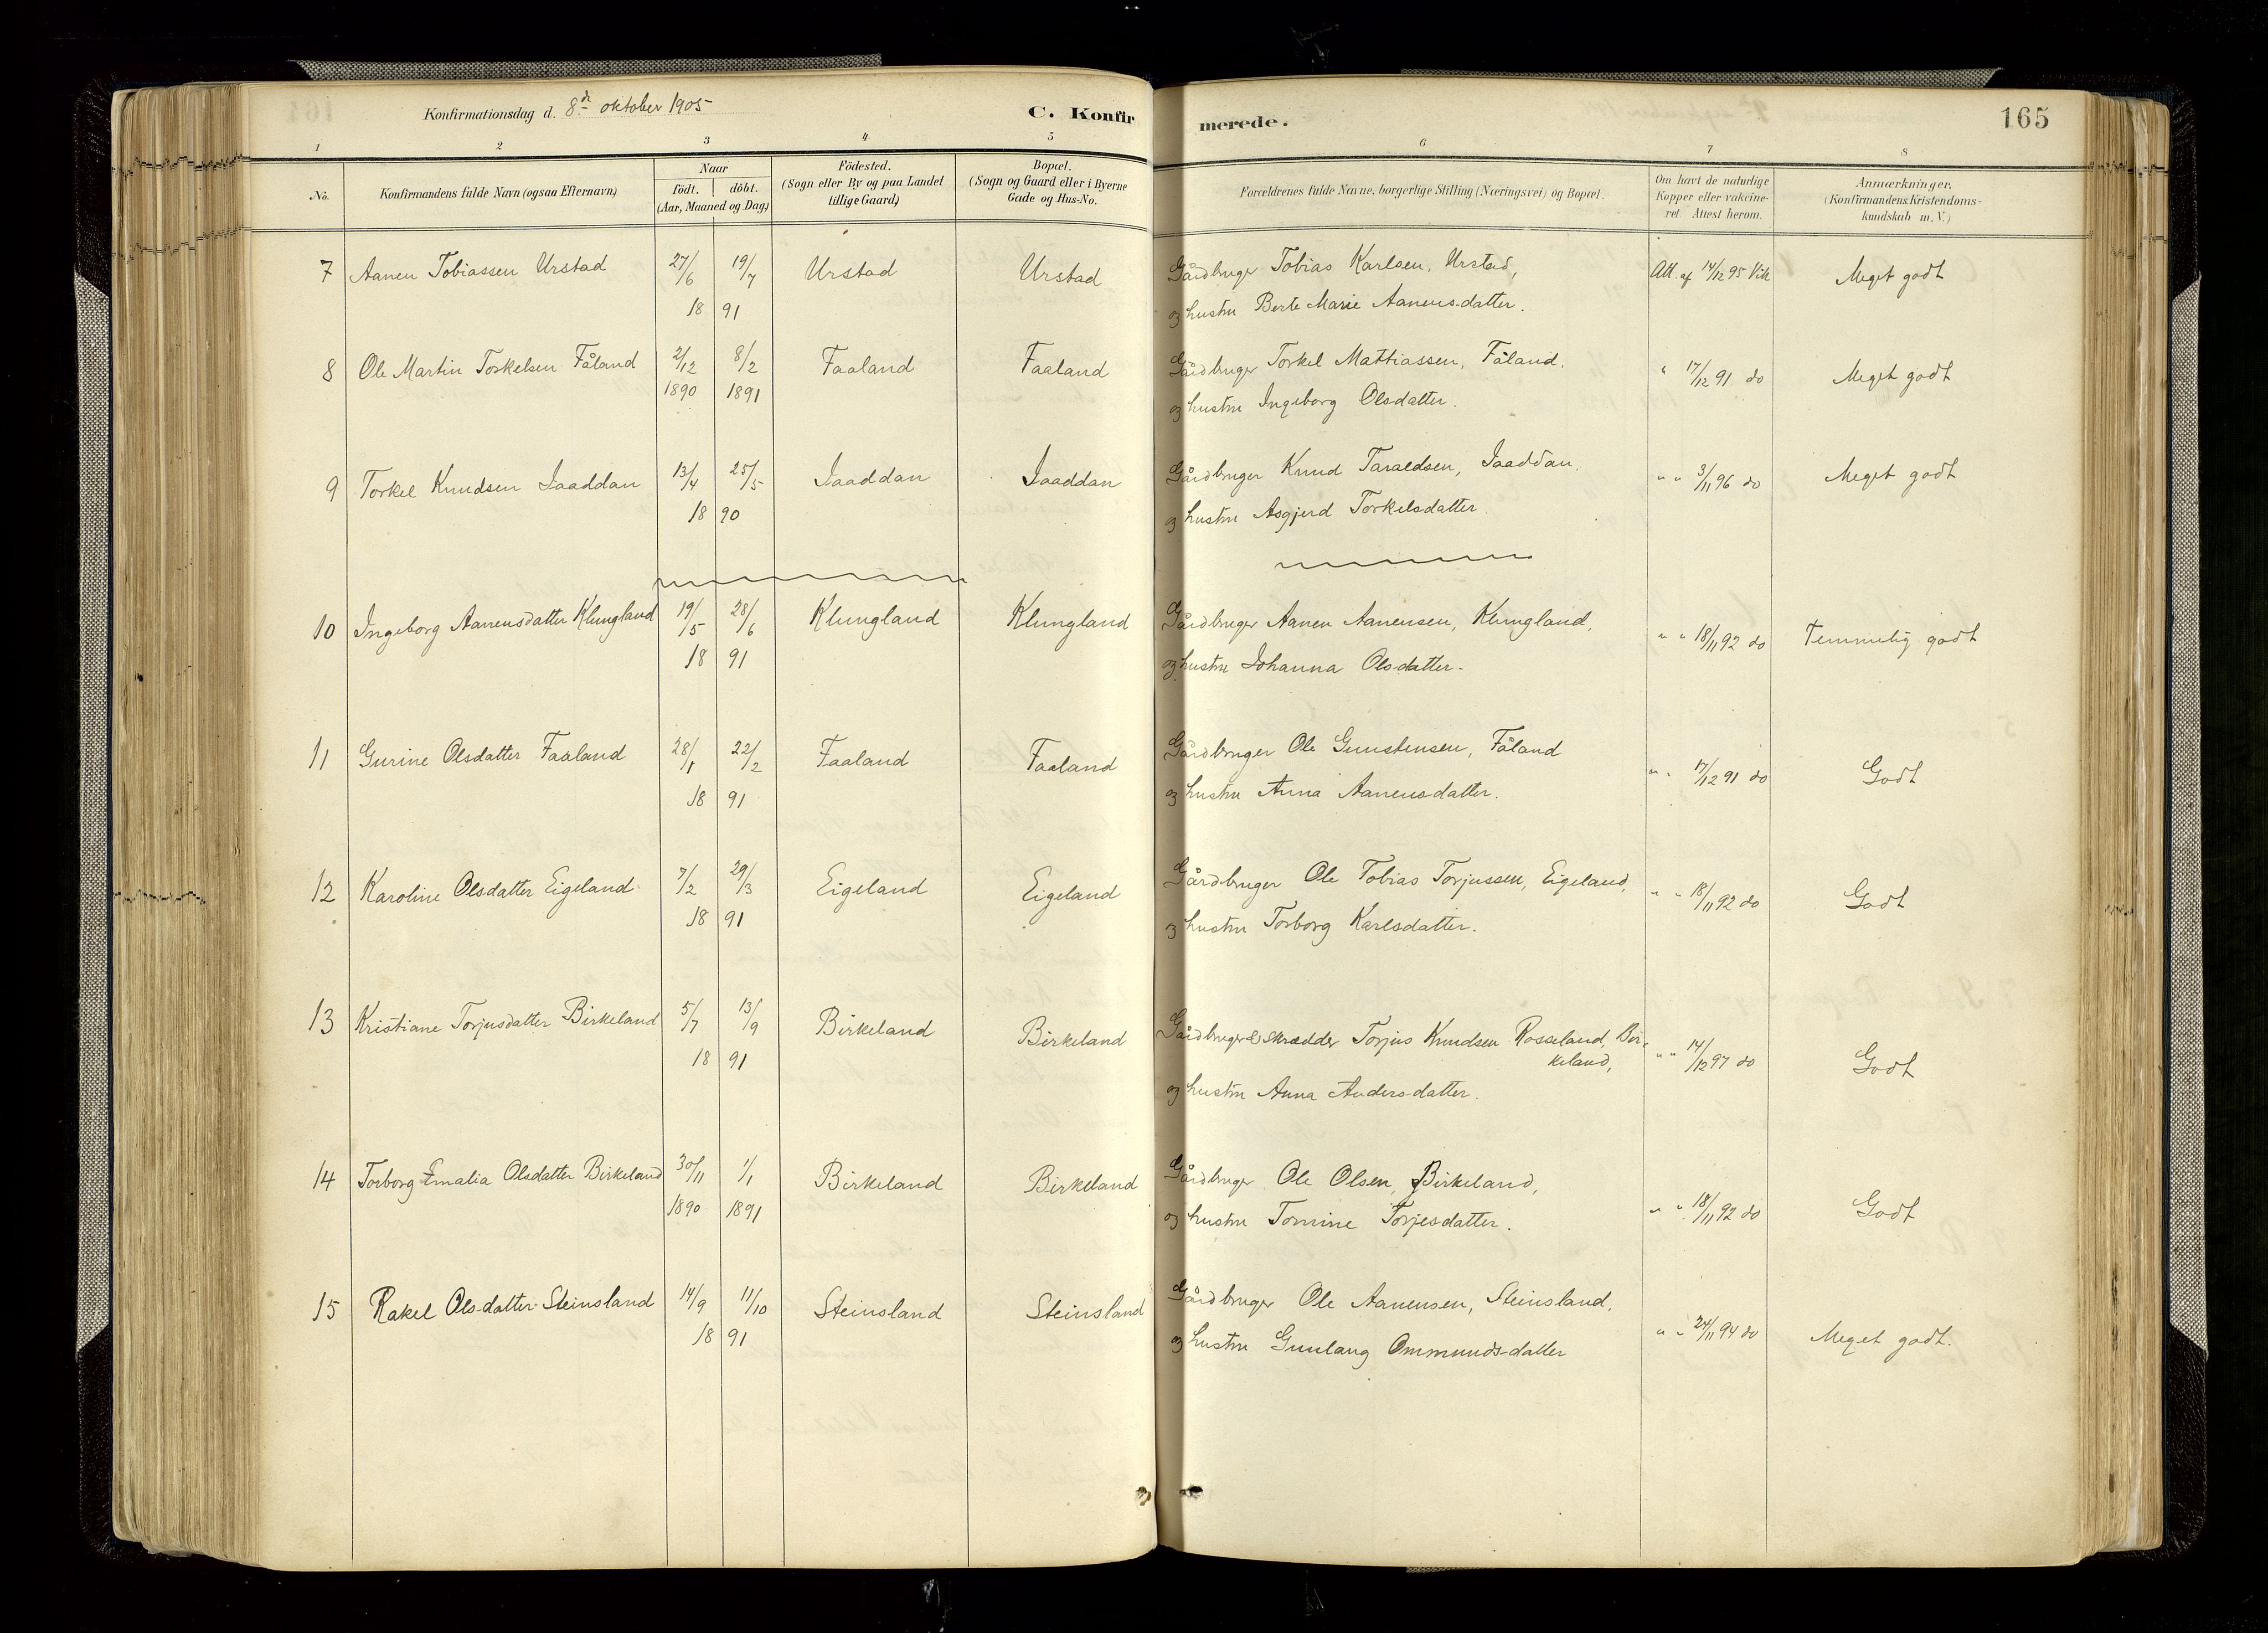 Konfirmationsdag d. 8de oktober 1905
C. Konfirmerede.
165
1 2 3 4 5 6 7 8
No.
Konfirmandens fulde Navn (ogsaa Efternavn)
Naar
födt. döbt.
(Aar, Maaned og Dag)
Födested.
(Sogn eller By og paa Landet
tillige Gaard)
Bopæl.
(Sogn og Gaard eller i Byerne
Gade og Hus-No.
Forældrenes fulde Navne, borgerlige Stilling (Næringsvei) og Bopæl.
Om havt de naturlige
Kopper eller vakcine-
ret. Attest herom.
Anmærkninger.
(Konfirmandens Kristendoms-
kundskab m. V.)
7 Aanen Tobiassen Urstad 27/6 19/7 Urstad Urstad Gårdbruger Tobias Karlsen, Urstad, Att. af 14/12 95 Vik Meget godt
18 91 og hustru Berte Marie Aanensdatter.
8 Ole Martin Torkelsen Fåland 2/12 8/2 Faaland Faaland Gårdbruger Torkel Mattiassen, Fåland. " 17/12 91 do Meget godt
1890 1891 og hustru Ingeborg Olsdatter.
9 Torkel Knudsen Iaaddan 13/4 25/5 Iaaddan Iaaddan Gårdbruger Knud Taraldsen, Iaaddan. " " 3/11 96 do Meget godt
18 90 og hustru Asgjerd Torkelsdatter.
10 Ingeborg Aanensdatter Klungland 19/5 28/6 Klungland Klungland Gårdbruger Aanen Aanensen, Klungland, " " 18/11 92 do Temmelig godt
18 91 og hustru Johanna Olsdatter.
11 Gurine Olsdatter Faaland 28/1 22/2 Faaland Faaland Gårdbruger Ole Gunstensen, Fåland " " 17/12 91 do Godt
18 91 og hustru Anna Aanensdatter.
12 Karoline Olsdatter Eigeland 7/2 29/3 Eigeland Eigeland Gårdbruger Ole Tobias Torjussen, Eigeland, " " 18/11 92 do Godt
18 91 og hustru Torborg Karlsdatter.
13 Kristiane Torjusdatter Birkeland 5/7 13/9 Birkeland Birkeland Gårdbruger & skrædder Torjus Knudsen Rosseland, Bir-
keland, " " 14/12 97 do Godt
18 91 og hustru Anna Andersdatter.
14 Torborg Emalia Olsdatter Birkeland 30/11 1/1 Birkeland Birkeland Gårdbruger Ole Olsen, Birkeland,
1890 1891 og hustru Tomine Torjesdatter. " " 18/11 92 do Godt
15 Rakel Olsdatter Steinsland 14/9 11/10 Steinsland Steinsland Gårdbruger Ole Aanensen, Steinsland,
18 91 og hustru Gunlaug Ommundsdatter " " 24/11 94 do Meget godt.